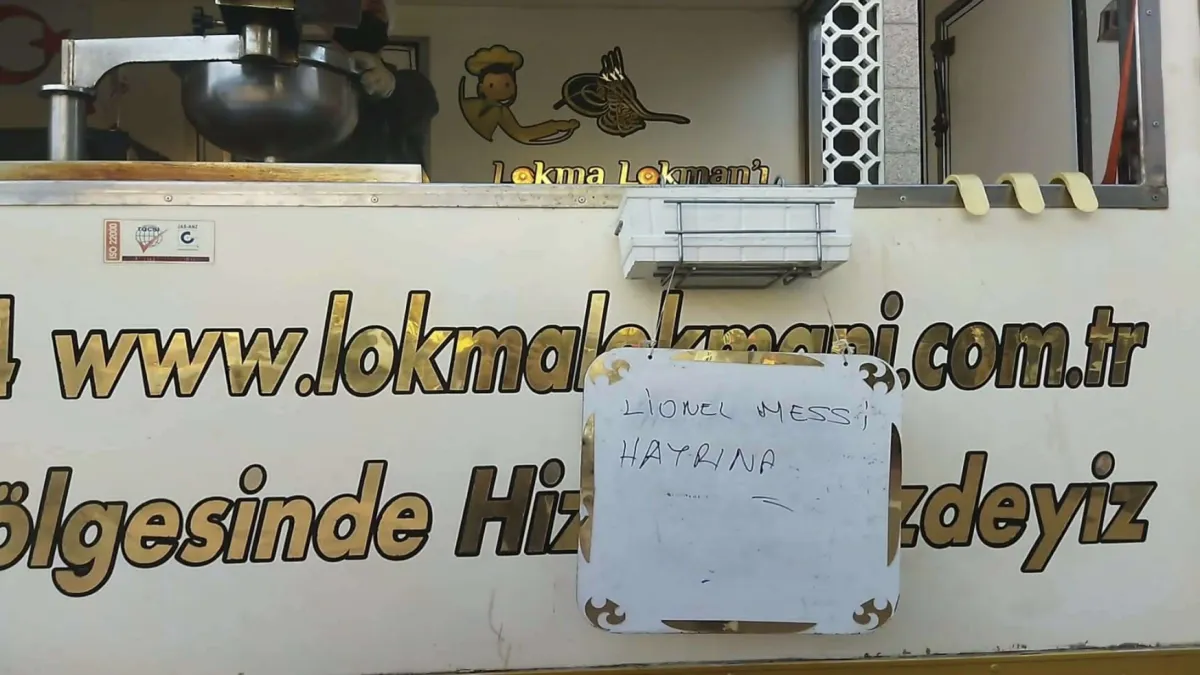 Lokma Lokman'ı
ISO 22000
www.lokmalokmani.com.tr
ölgesinde Hiz zdeyiz
LİONEL MESSİ
HAYRINA